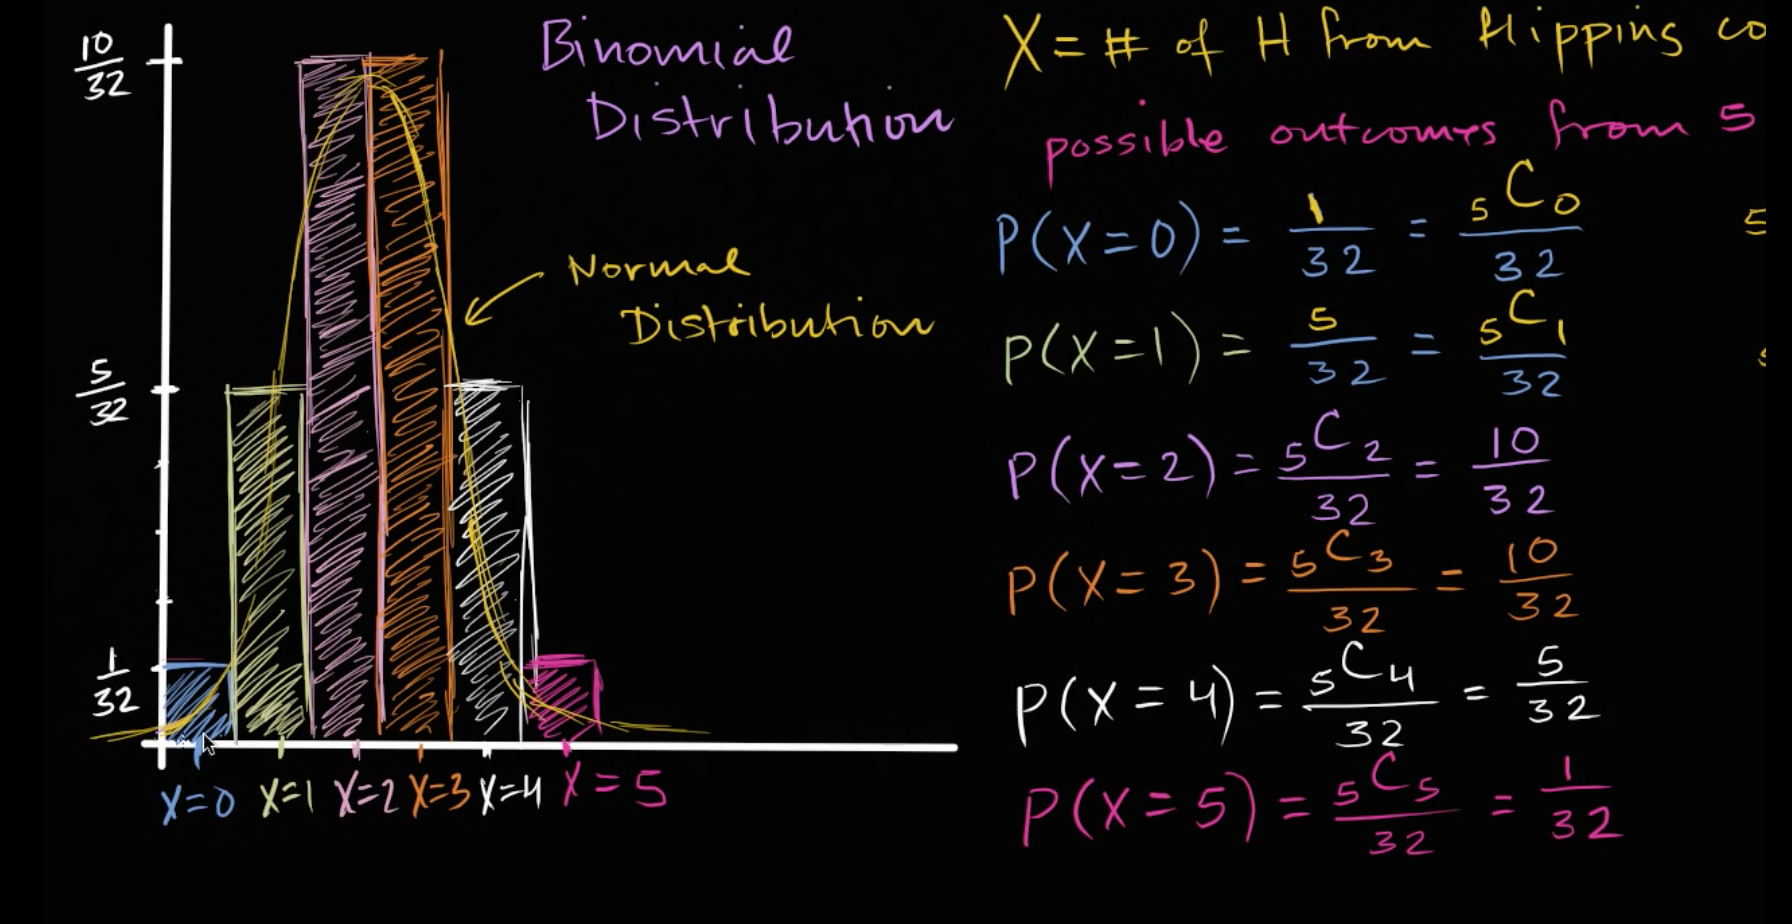 10/32
5/32
1/32
Binomial
Distribution
Normal
Distribution
X=0 X=1 X=2 X=3 X=4 X=5
X = # of H from flipping co
possible outcomes from 5
P(X=0) = 1/32 = ₅C₀/32
5
P(X=1) = 5/32 = ₅C₁/32
P(X=2) = ₅C₂/32 = 10/32
P(X=3) = ₅C₃/32 = 10/32
P(X=4) = ₅C₄/32 = 5/32
P(X=5) = ₅C₅/32 = 1/32